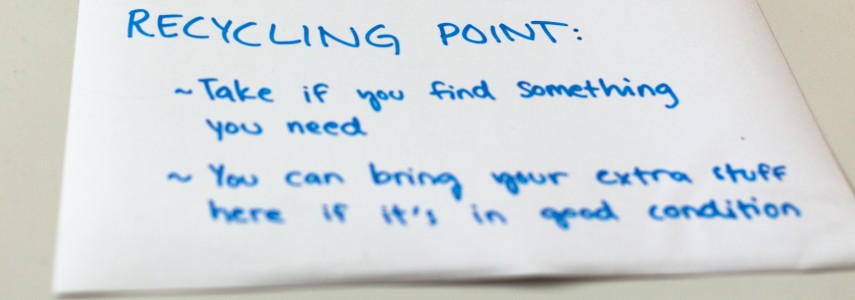 RECYCLING POINT:
~ Take if you find something
you need
~ You can bring your extra stuff
here if it's in good condition